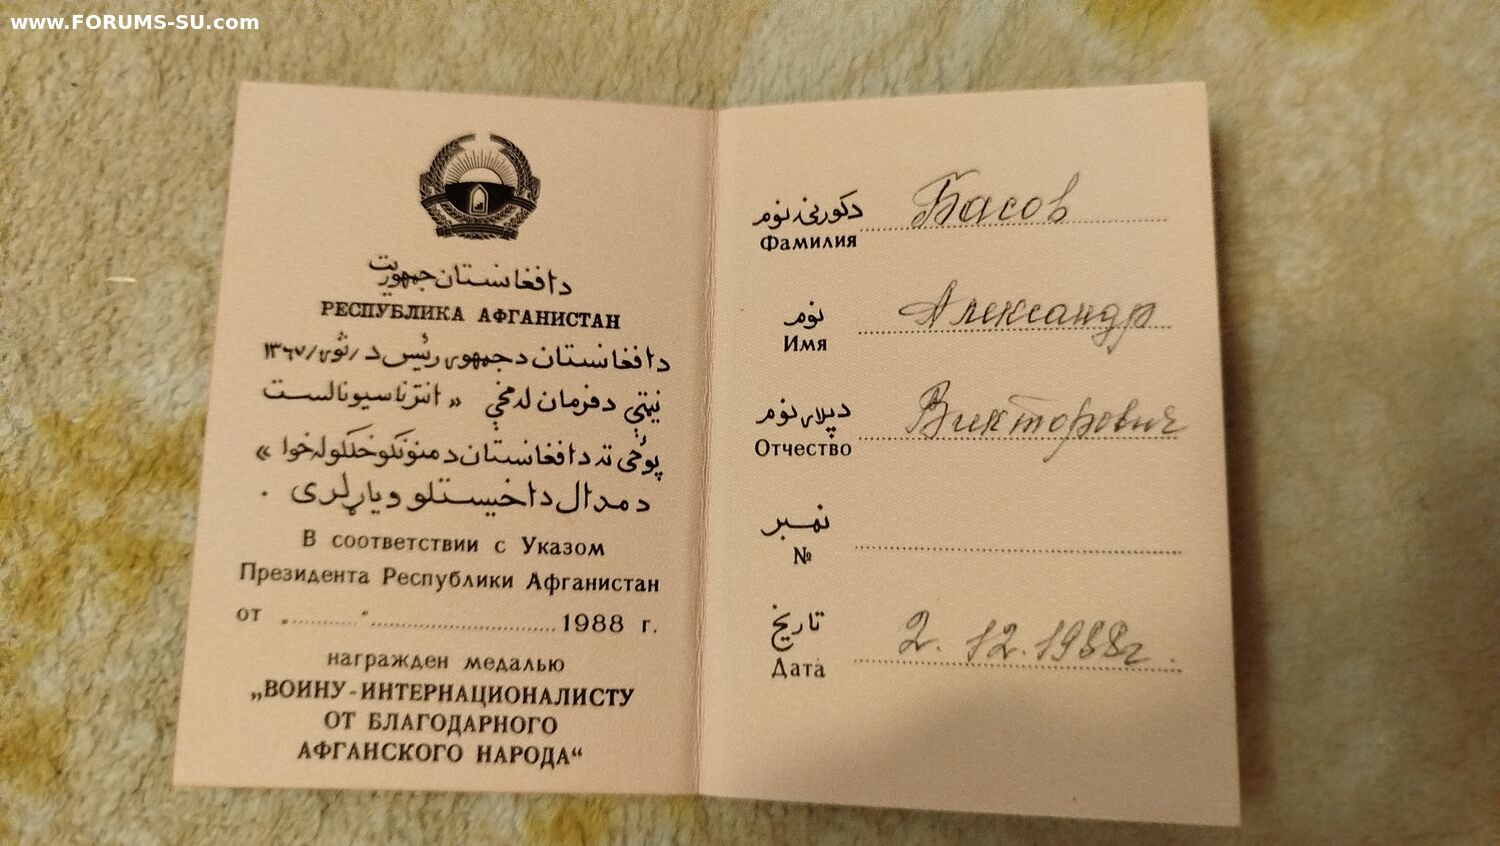 www.FORUMS-SU.com
دافغانستان جمهوریت
РЕСПУБЛИКА АФГАНИСТАН
دافغانستان دجمهوری رئیس د /ثور/ ۱۳۶۷
نیټې دفرمان له مخې « انترناسیونالست
پوځی ته دافغانستان دمنونکو خلکو له خوا »
دمدال داخیستلو ویاړ لری .
В соответствии с Указом
Президента Республики Афганистан
от „..........“ .............................. 1988 г.
награжден медалью
„ВОИНУ-ИНТЕРНАЦИОНАЛИСТУ
ОТ БЛАГОДАРНОГО
АФГАНСКОГО НАРОДА“
دکورنۍ نوم
Фамилия Басов
نوم
Имя Александр
دپلار نوم
Отчество Викторович
نمبر
№
تاریخ
Дата 2.12.1988г.